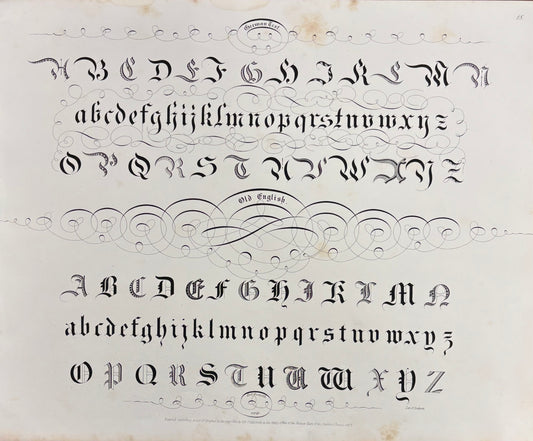 15.
German Text.
A B C D E F G H I K L M N
a b c d e f g h i j k l m n o p q r s t u v w x y z
O P Q R S T U V W X Y Z
Old English.
A B C D E F G H I K L M N
a b c d e f g h i j k l m n o p q r s t u v w x y z
O P Q R S T U V W X Y Z